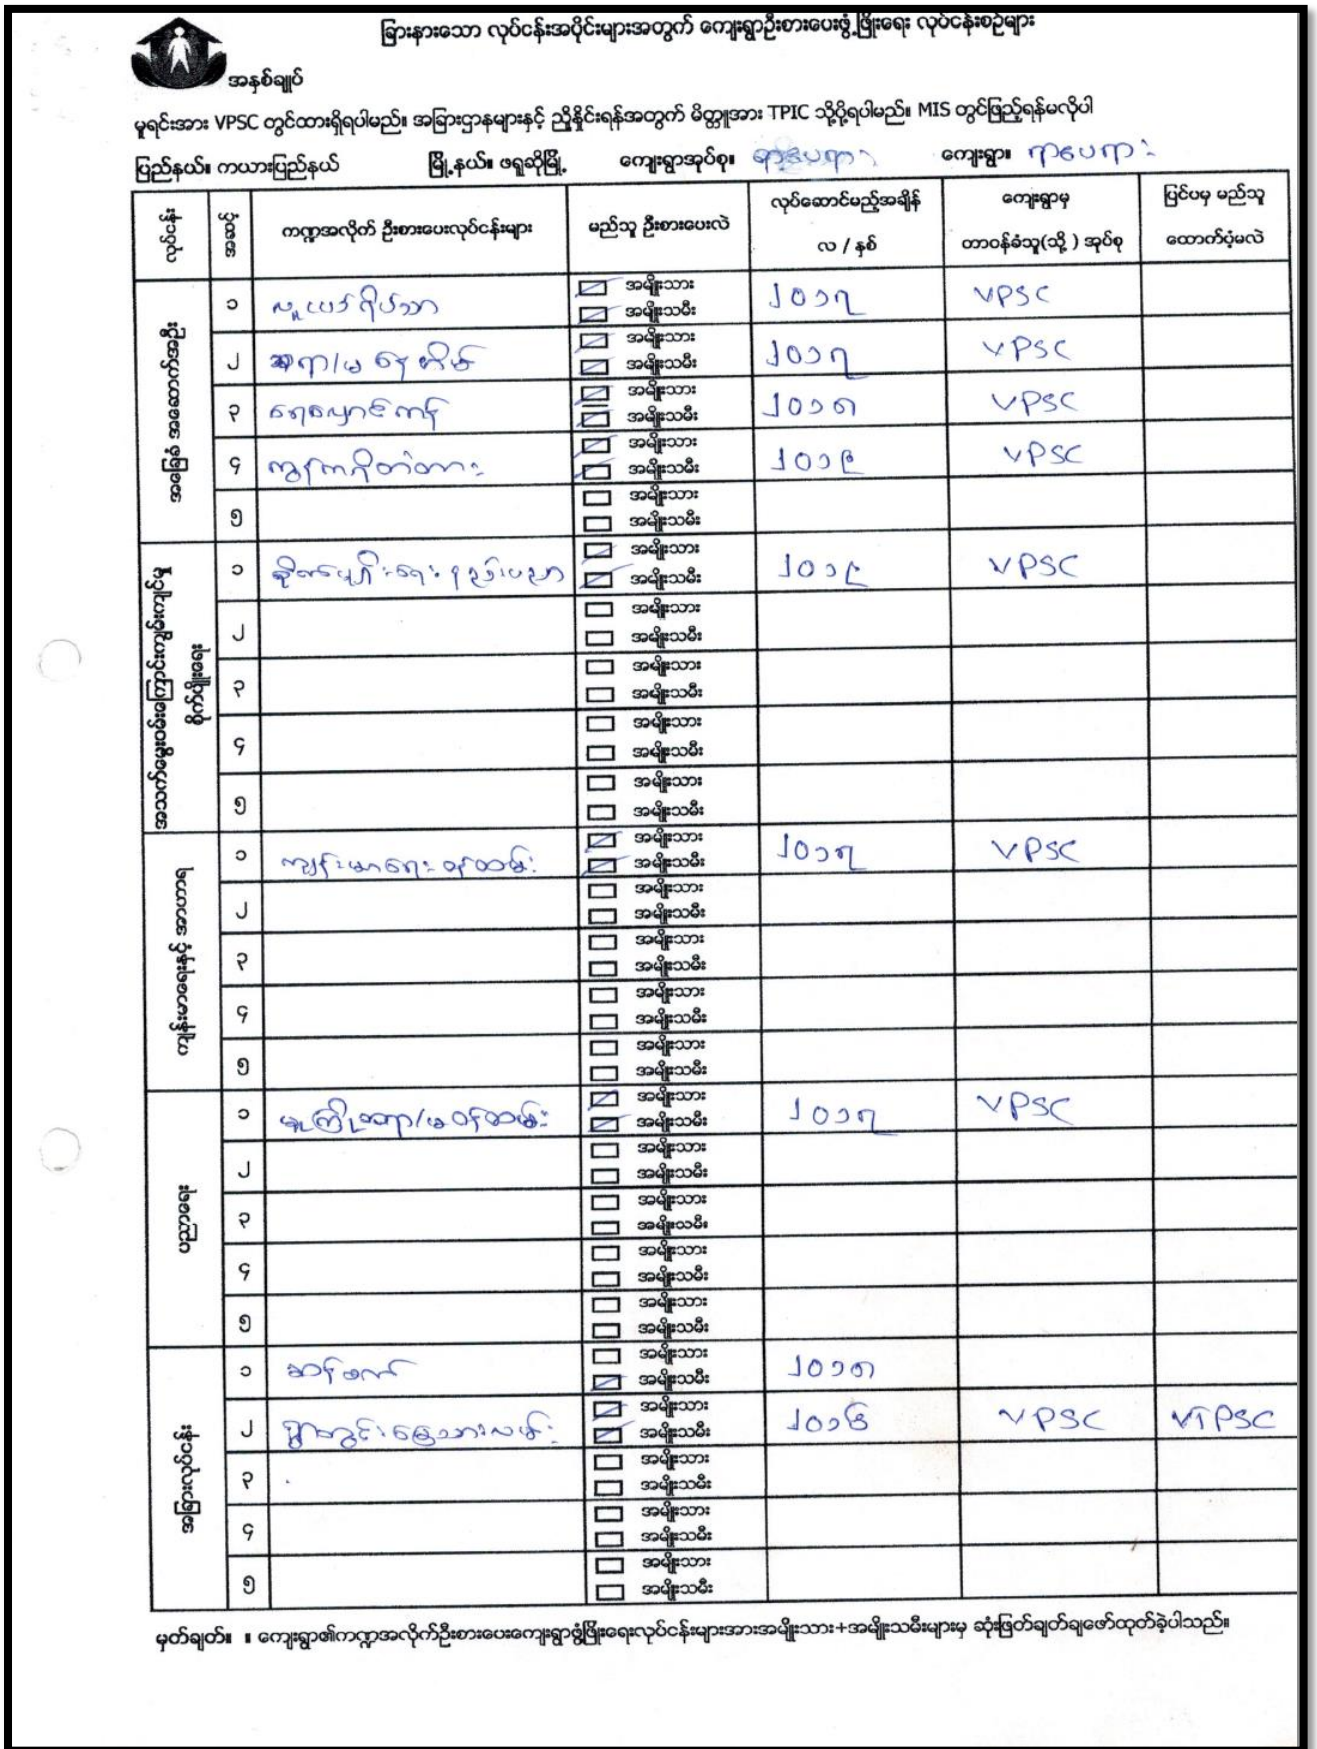 ခြားနားသော လုပ်ငန်းအပိုင်းများအတွက် ကျေးရွာဦးစားပေးဖွံ့ဖြိုးရေး လုပ်ငန်းစဉ်များ
အနှစ်ချုပ်
မူရင်းအား VPSC တွင်ထားရှိရပါမည်။ အခြားဌာနများနှင့် ညှိနှိုင်းရန်အတွက် မိတ္တူအား TPIC သို့ပို့ရပါမည်။ MIS တွင်ဖြည့်ရန်မလိုပါ
ပြည်နယ်။ ကယားပြည်နယ် မြို့နယ်။ ဖရူဆိုမြို့ ကျေးရွာအုပ်စု။ ကျေးရွာ။
လုပ်ငန်း အထွေ ကဏ္ဍအလိုက် ဦးစားပေးလုပ်ငန်းများ မည်သူ ဦးစားပေးလဲ လုပ်ဆောင်မည့်အချိန် လ / နှစ် ကျေးရွာမှ တာဝန်ခံသူ(သို့) အုပ်စု ပြင်ပမှ မည်သူ ထောက်ပံ့မလဲ
အခြေခံ အဆောက်အဦး
၁ အမျိုးသား အမျိုးသမီး ၂၀၁၇ VPSC
၂ အမျိုးသား အမျိုးသမီး ၂၀၁၇ VPSC
၃ ရေလှောင်ကန် အမျိုးသား အမျိုးသမီး ၂၀၁၈ VPSC
၄ ကွန်ကရိတ်တံတား အမျိုးသား အမျိုးသမီး ၂၀၁၉ VPSC
၅ အမျိုးသား အမျိုးသမီး
အသက်မွေးဝမ်းကြောင်းကျွမ်းကျင်မှု စိုက်ပျိုးရေး
၁ စိုက်ပျိုးရေး နည်းပညာ အမျိုးသား အမျိုးသမီး ၂၀၁၉ VPSC
၂ အမျိုးသား အမျိုးသမီး
၃ အမျိုးသား အမျိုးသမီး
၄ အမျိုးသား အမျိုးသမီး
၅ အမျိုးသား အမျိုးသမီး
ကျန်းမာရေးနှင့် အာဟာရ
၁ ကျန်းမာရေး ဝန်ထမ်း အမျိုးသား အမျိုးသမီး ၂၀၁၇ VPSC
၂ အမျိုးသား အမျိုးသမီး
၃ အမျိုးသား အမျိုးသမီး
၄ အမျိုးသား အမျိုးသမီး
၅ အမျိုးသား အမျိုးသမီး
ပညာရေး
၁ မူကြိုဆရာ/မ ဝန်ထမ်း အမျိုးသား အမျိုးသမီး ၂၀၁၇ VPSC
၂ အမျိုးသား အမျိုးသမီး
၃ အမျိုးသား အမျိုးသမီး
၄ အမျိုးသား အမျိုးသမီး
၅ အမျိုးသား အမျိုးသမီး
အခြားလုပ်ငန်း
၁ ဆန်စက် အမျိုးသား အမျိုးသမီး ၂၀၁၈
၂ ရွာတွင်းမြေသားလမ်း အမျိုးသား အမျိုးသမီး ၂၀၁၆ VPSC VTPSC
၃ အမျိုးသား အမျိုးသမီး
၄ အမျိုးသား အမျိုးသမီး
၅ အမျိုးသား အမျိုးသမီး
မှတ်ချတ်။ ။ ကျေးရွာ၏ကဏ္ဍအလိုက်ဦးစားပေးကျေးရွာဖွံ့ဖြိုးရေးလုပ်ငန်းများအားအမျိုးသား+အမျိုးသမီးများမှ ဆုံးဖြတ်ချတ်ချဖော်ထုတ်ခဲ့ပါသည်။